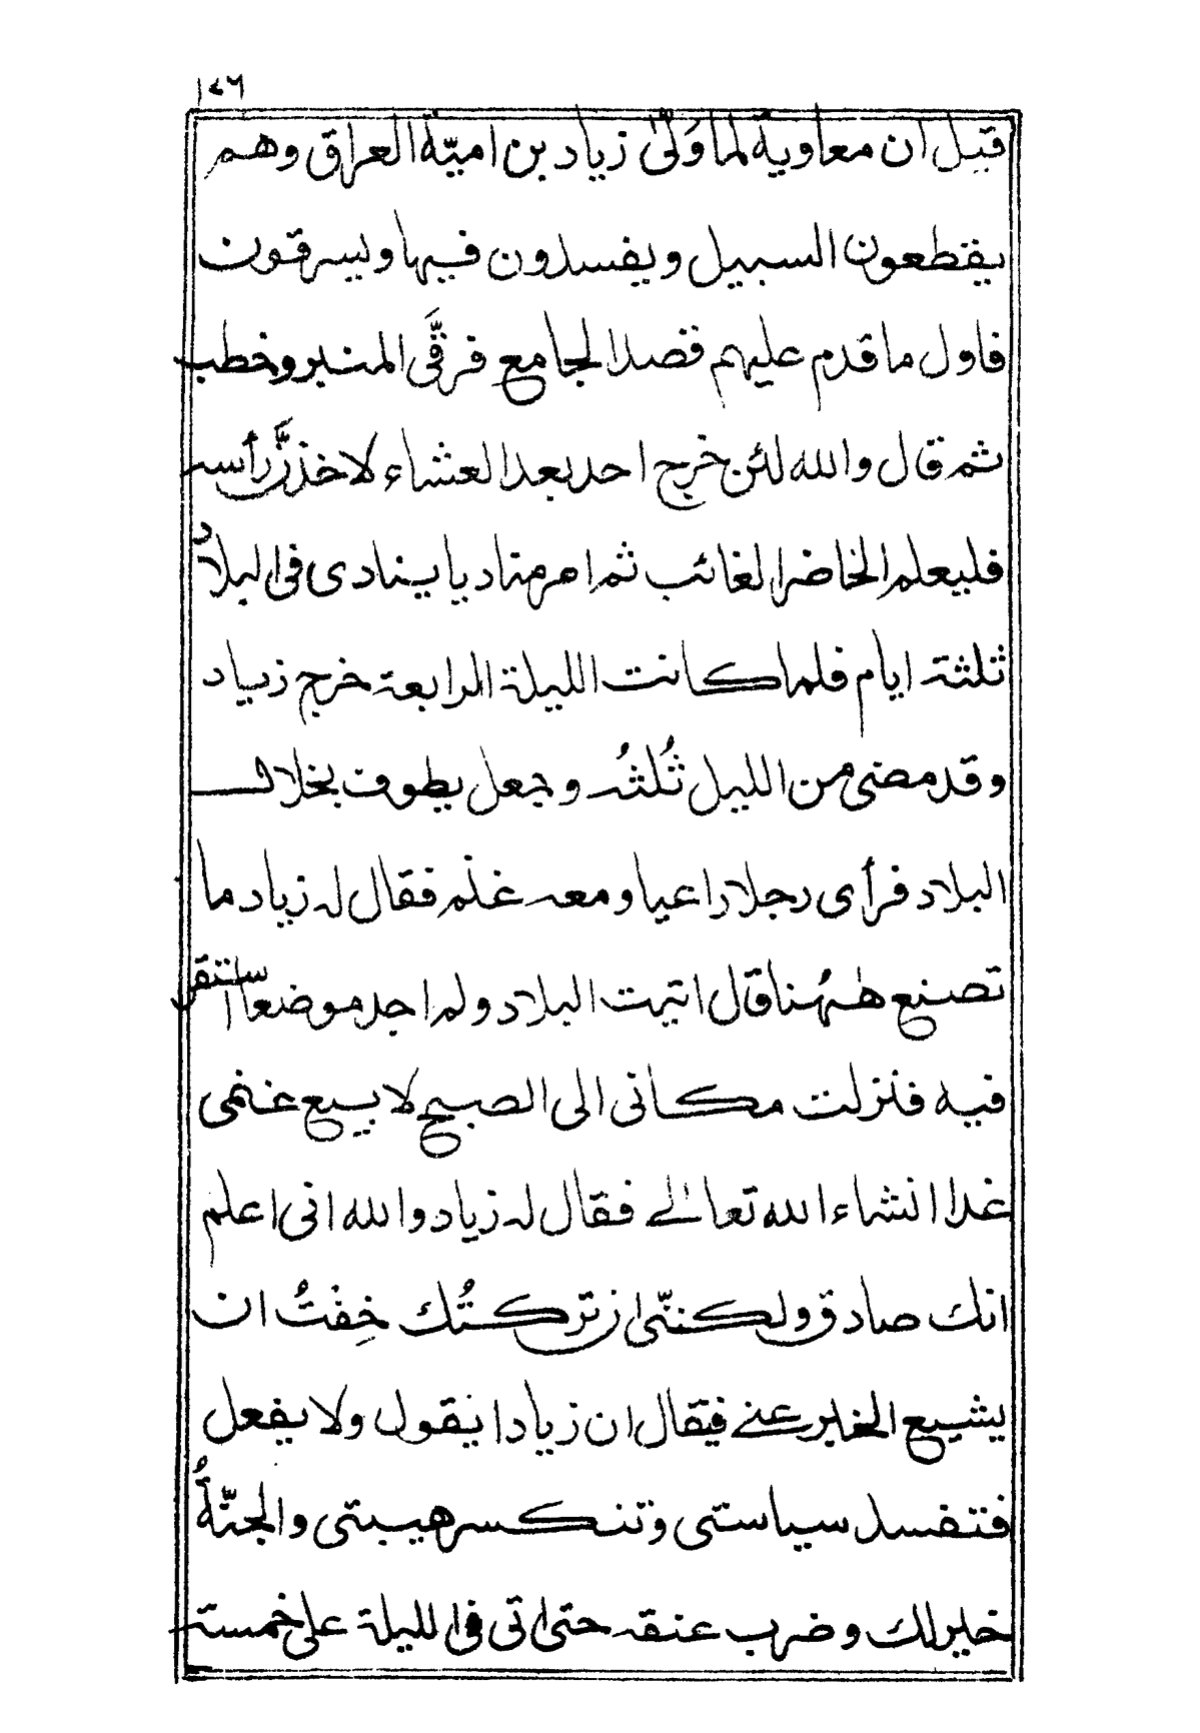 ١٢٦
قبل ان معاوية لما وَلّىٰ زياد بن امیّة العراق وهم
يقتطعون السبيل ويفسدون فيها ويسرقون
فاول ما قدم عليهم قصد الجامع فرقَّى المنبر وخطب
ثم قال والله لئن خرج احد بعد العشاء لاخذنَّ رأسه
فليعلم الحاضر الغائب ثم امر مناديا ينادى فى البلاد
ثلثة ايام فلما كانت الليلة الرابعة خرج زياد
وقد مضى من الليل ثُلثهُ وجعل يطوف بخلال
البلاد فرأى رجلا راعيا ومعه غنم فقال له زياد ما
تصنع هٰهُنا قال اتيت البلاد ولم اجد موضعا استقر
فيه فنزلت مكانى الى الصبح لابيع غنمى
غدا انشاء الله تعالٰے فقال له زياد والله انى اعلم
انك صادق ولكننّى ان تركتُك خِفْتُ ان
يشيع الخبر عنے فيقال ان زيادا يقول ولا يفعل
فتفسد سياستى وتنكسر هيبتى والجنّةُ
خير لك وضرب عنقه حتى اتى فى الليلة على خمسة